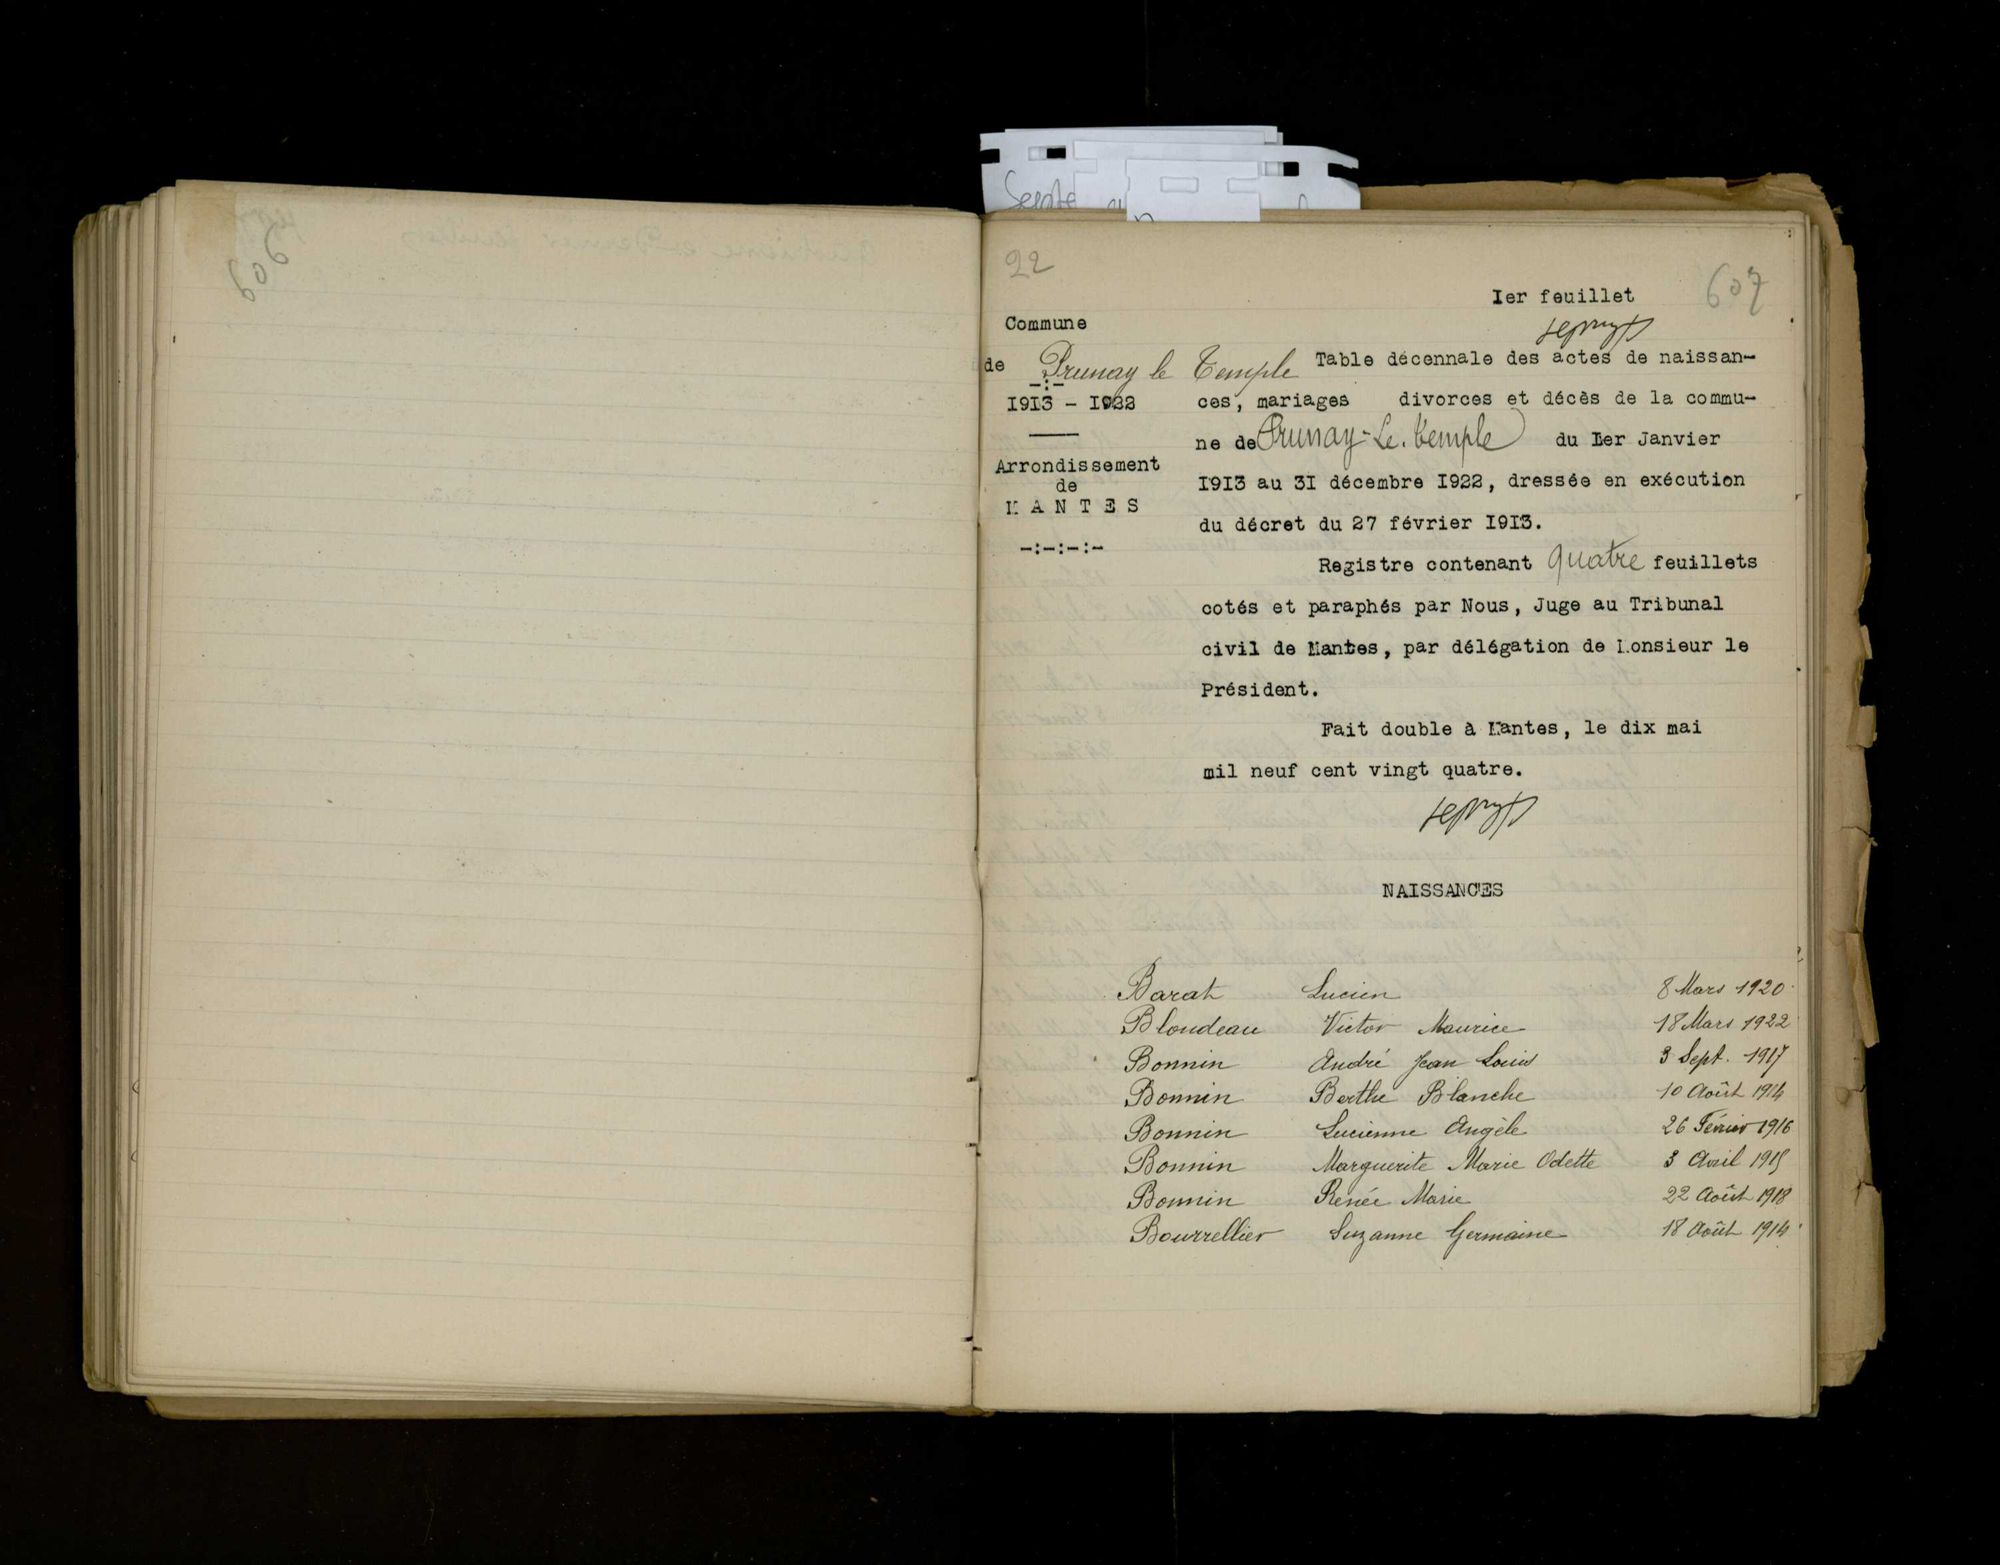 606
22
607
Ier feuillet
Commune
de Prunay le Temple
Table décennale des actes de naissan-
-:-
1913 - 1922
ces, mariages divorces et décès de la commu-
ne de Prunay-Le-Temple du Ier Janvier
Arrondissement
de
MANTES
-:-:-:-
1913 au 31 décembre 1922, dressée en exécution
du décret du 27 février 1913.
Registre contenant quatre feuillets
cotés et paraphés par Nous, Juge au Tribunal
civil de Mantes, par délégation de Monsieur le
Président.
Fait double à Mantes, le dix mai
mil neuf cent vingt quatre.
NAISSANCES
Barat Lucien 8 Mars 1920
Blondeau Victor Maurice 18 Mars 1922
Bonnin André Jean Louis 3 Sept. 1917
Bonnin Berthe Blanche 10 Août 1914
Bonnin Lucienne Angèle 26 Février 1916
Bonnin Marguerite Marie Odette 3 Avril 1915
Bonnin Renée Marie 22 Août 1918
Bourrellier Suzanne Germaine 18 Août 1914